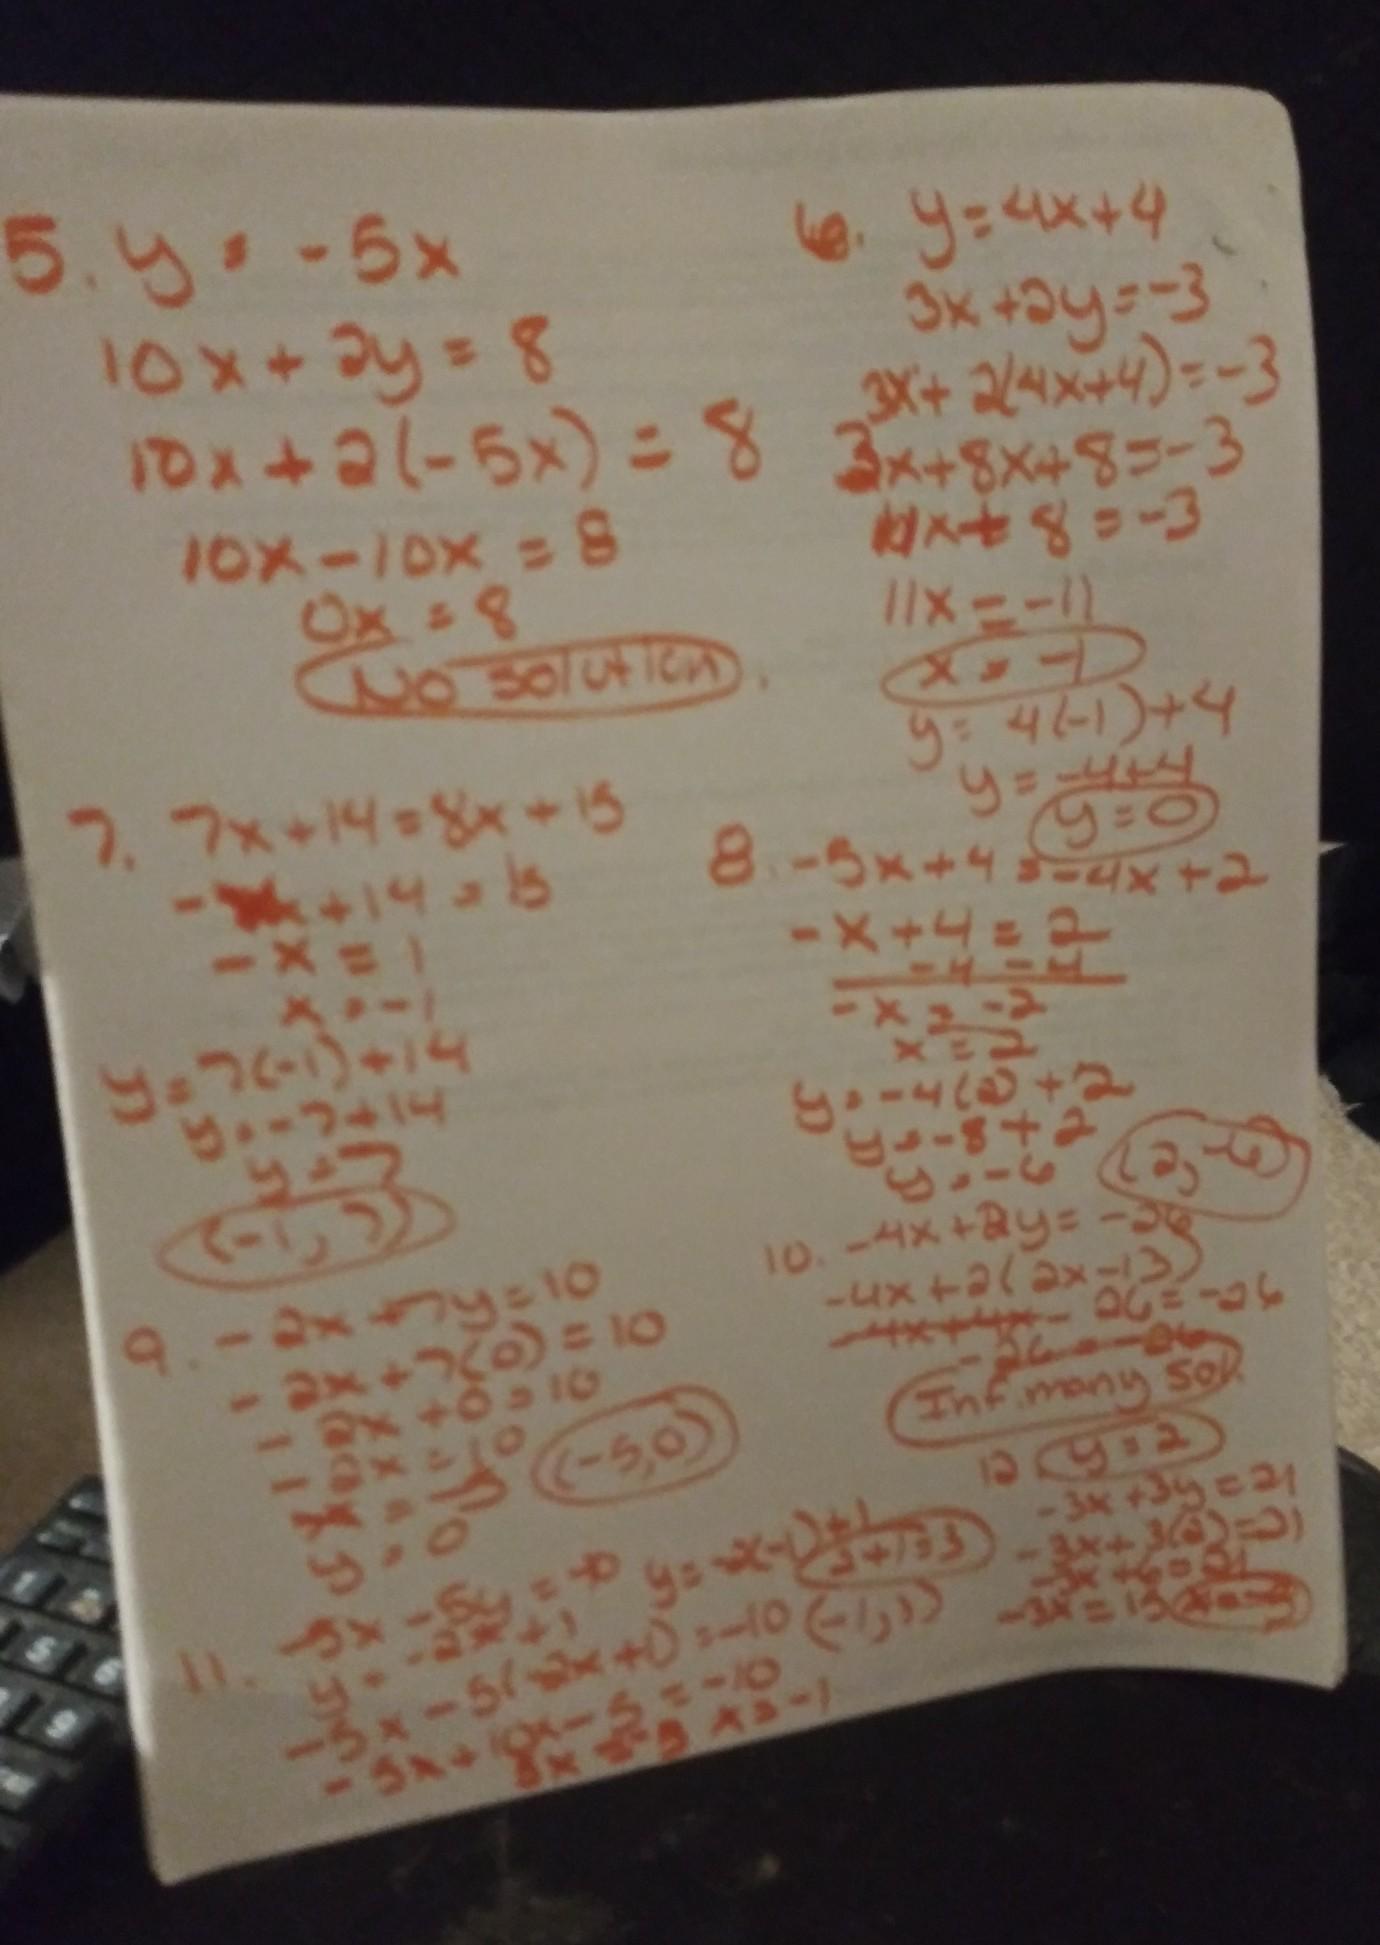 5. y = -5x
10x + 2y = 8
10x + 2(-5x) = 8
10x - 10x = 8
0x = 8
No solution.
6. y = 4x+4
3x + 2y = -3
3x + 2(4x+4) = -3
3x + 8x + 8 = -3
11x + 8 = -3
11x = -11
x = -1
y = 4(-1) + 4
y = -4+4
y = 0
7. 7x + 14 = 8x + 15
-x + 14 = 15
-x = 1
x = -1
y = 7(-1) + 14
y = -7 + 14
y = 7
(-1, 7)
8. -5x + 4 = -4x + 2
-x + 4 = 2
-4 -4
-x = -2
x = 2
y = -4(2) + 2
y = -8 + 2
y = -6
(2, -6)
9. -2x + 7y = 10
-2x + 7(0) = 10
-2x + 0 = 10
-2x = 10
y = 0
(-5, 0)
10. -4x + 2y = -26
-4x + 2(2x-13)
-4x + 4x - 26 = -26
Inf. many sol.
12. y = 2
-3x + 3y = 21
-3x + 3(2) = 21
-3x + 6 = 21
-3x = 15
11.
y = -2x + 1
-5x - 5(-2x+1) = -10
-5x + 10x - 5 = -10
x = -1
2+1 = 3
(-1, 3)